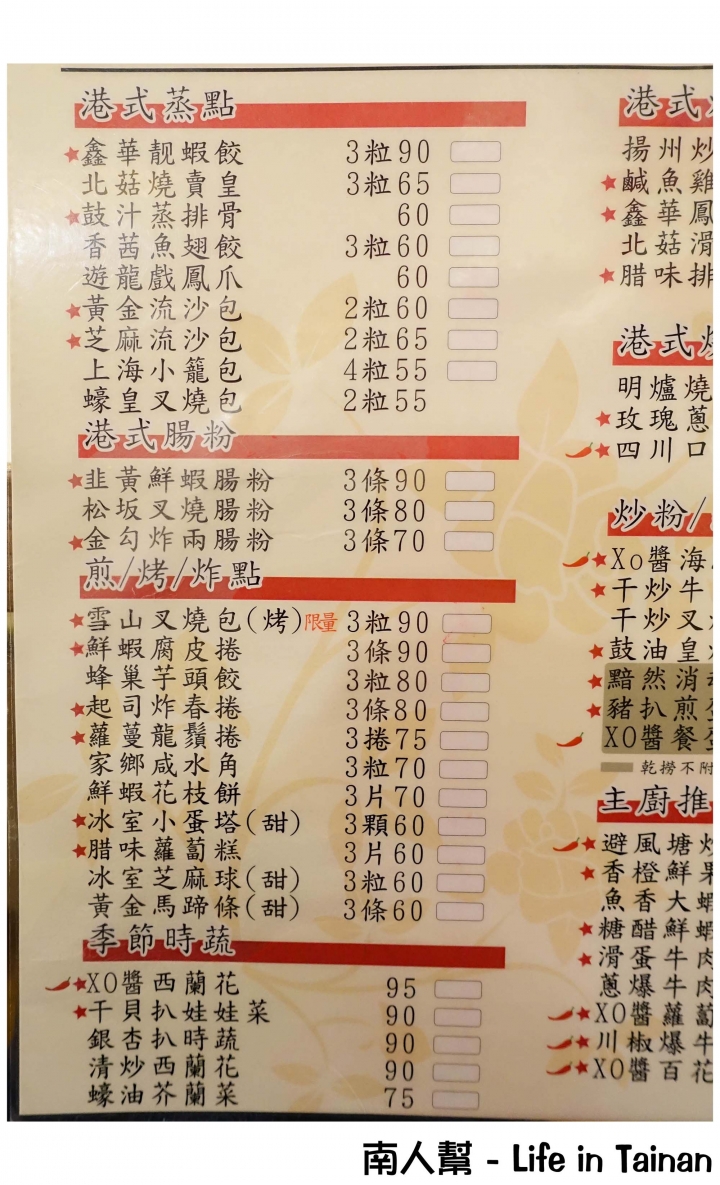 港式蒸點
★鑫華靚蝦餃 3粒90
北菇燒賣皇 3粒65
★鼓汁蒸排骨 60
香茜魚翅餃 3粒60
遊龍戲鳳爪 60
★黃金流沙包 2粒60
★芝麻流沙包 2粒65
上海小籠包 4粒55
蠔皇叉燒包 2粒55
港式腸粉
★韭黃鮮蝦腸粉 3條90
松坂叉燒腸粉 3條80
★金勾炸兩腸粉 3條70
煎/烤/炸點
★雪山叉燒包(烤)限量 3粒90
★鮮蝦腐皮捲 3條90
蜂巢芋頭餃 3粒80
★起司炸春捲 3條80
★蘿蔓龍鬚捲 3捲75
家鄉咸水角 3粒70
鮮蝦花枝餅 3片70
★冰室小蛋塔(甜) 3顆60
★腊味蘿蔔糕 3片60
冰室芝麻球(甜) 3粒60
黃金馬蹄條(甜) 3條60
季節時蔬
★XO醬西蘭花 95
★干貝扒娃娃菜 90
銀杏扒時蔬 90
清炒西蘭花 90
蠔油芥蘭菜 75
港式
揚州炒
★鹹魚雞
★鑫華鳳
北菇滑
★腊味排
港式燒
明爐燒
★玫瑰蔥
★四川口
炒粉/
★Xo醬海
★干炒牛
干炒叉
★鼓油皇
★黯然消
★豬扒煎
XO醬餐
乾撈不附
主廚推
★避風塘炒
★香橙鮮果
魚香大蝦
★糖醋鮮蝦
★滑蛋牛肉
蔥爆牛肉
★XO醬蘿蔔
★川椒爆牛
★XO醬百花
南人幫 - Life in Tainan